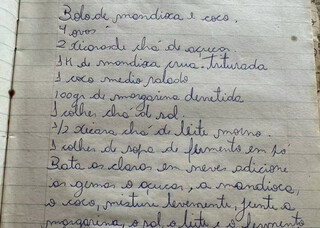 Bolo de mandioca e coco.
4 ovos
2 xícaras de chá de açucar
1 K de mandioca crua triturada
1 coco medio ralado
100gr de margarina derretida
1 colher chá de sal
1/2 xícara chá de leite morno.
1 colher de sopa de fermento em pó
Bata as claras em neves adicione
as gemas o açucar, a mandioca,
o coco, misture levemente, junte a
margarina, o sal o leite e o fermento